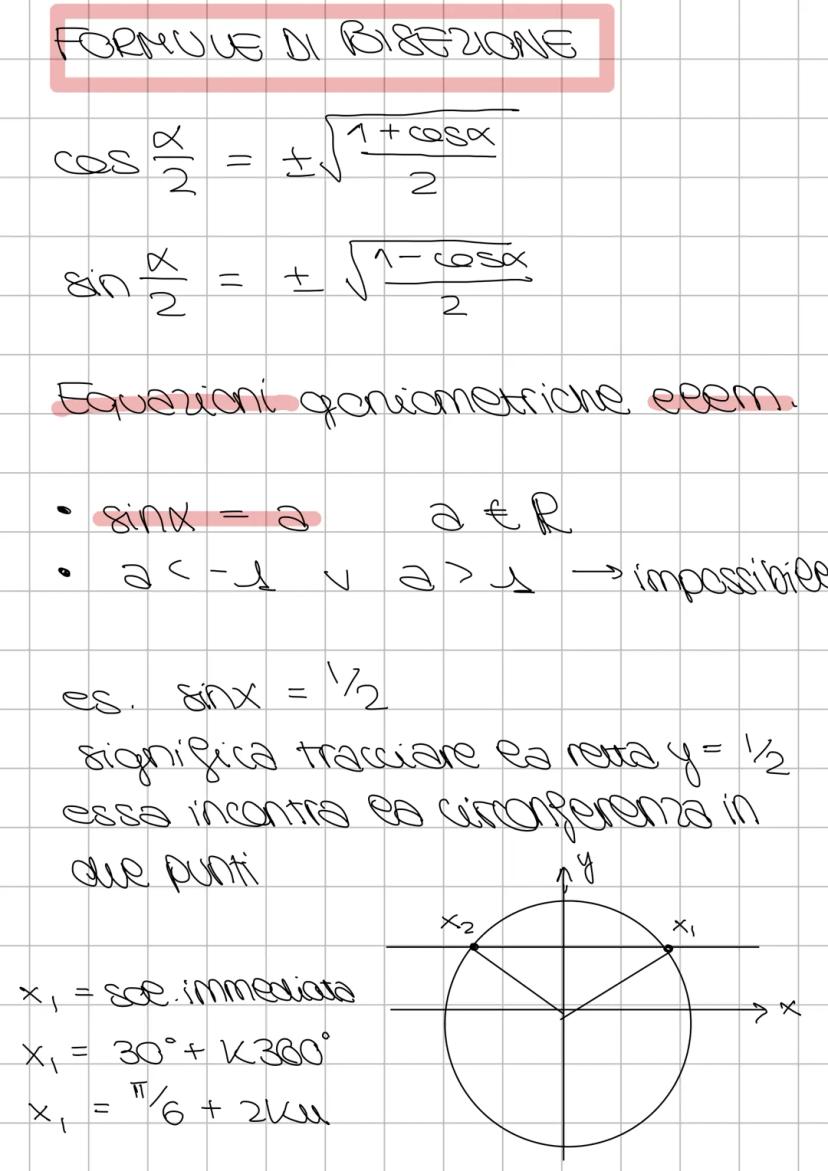 FORMULE DI BISEZIONE
cos α/2 = ±√(1+cosα / 2)
sin α/2 = ± √(1-cosα / 2)
Equazioni goniometriche elem.
• sinx = a a ∈ R
• a < -1 v a > 1 → impossibile
es. sinx = 1/2
significa tracciare la retta y = 1/2
essa incontra la circonferenza in
due punti
y
x₂ x₁
x
x₁ = sol. immediata
x₁ = 30° + K360°
x₁ = π/6 + 2Kπ